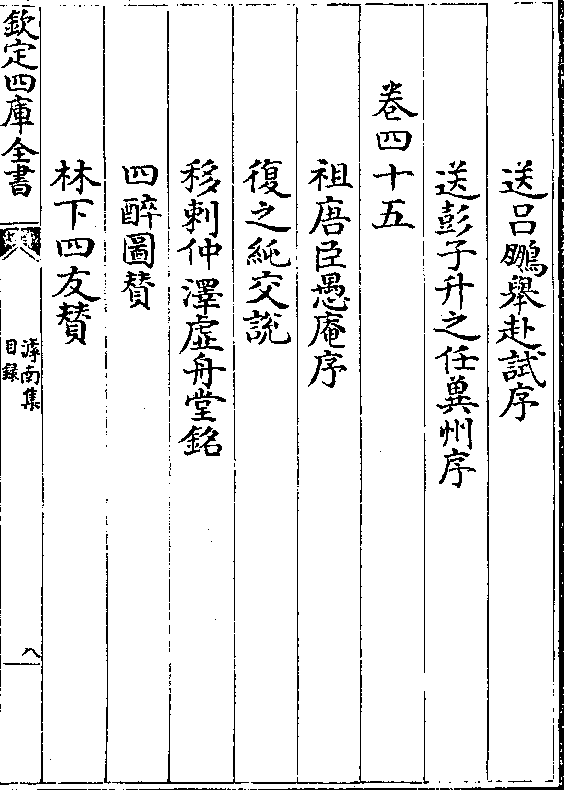 送吕鵬舉赴試序
送彭子升之任冀州序
卷四十五
祖唐臣愚庵序
復之純交說
移剌仲澤虚舟堂銘
四醉圖賛
林下四友賛
欽定四庫全書
滹南集
目録
八